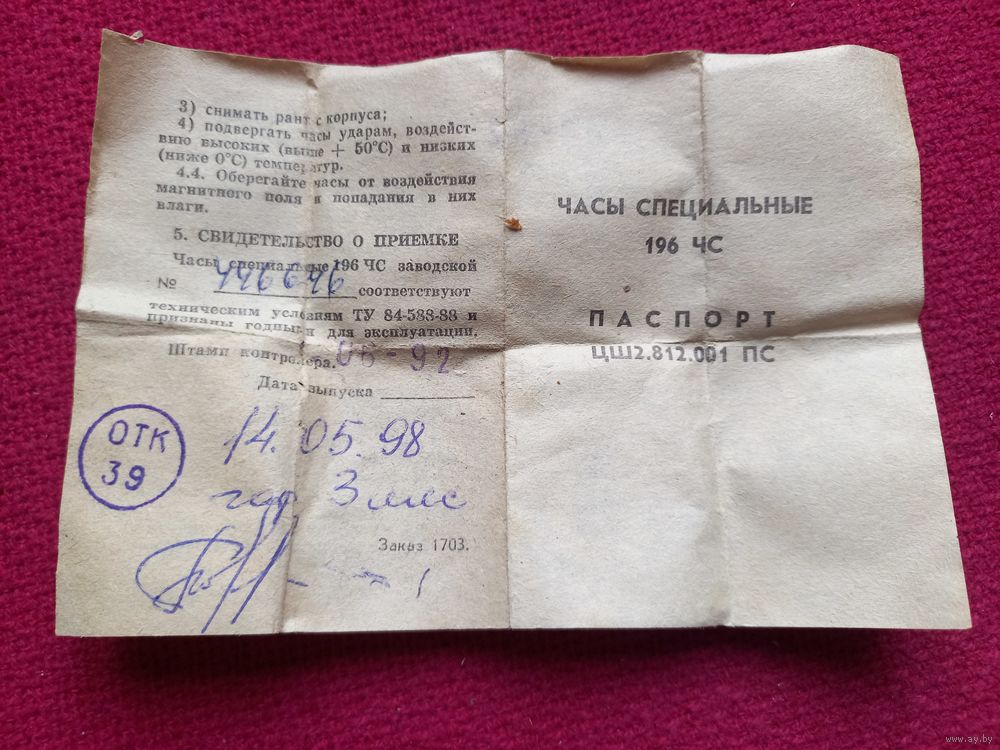 3) снимать рант с корпуса;
4) подвергать часы ударам, воздейст-
вию высоких (выше + 50°С) и низких
(ниже 0°С) температур.
4.4. Оберегайте часы от воздействия
магнитного поля и попадания в них
влаги.
5. СВИДЕТЕЛЬСТВО О ПРИЕМКЕ
Часы специальные 196 ЧС заводской
№ 446646 соответствуют
техническим условиям ТУ 84-588-88 и
признаны годными для эксплуатации.
Штамп контролера. 06-92
Дата выпуска
14.05.98
ОТК
39
год 3 мес
Заказ 1703.
ЧАСЫ СПЕЦИАЛЬНЫЕ
196 ЧС
ПАСПОРТ
ЦШ2.812.001 ПС
www.ay.by